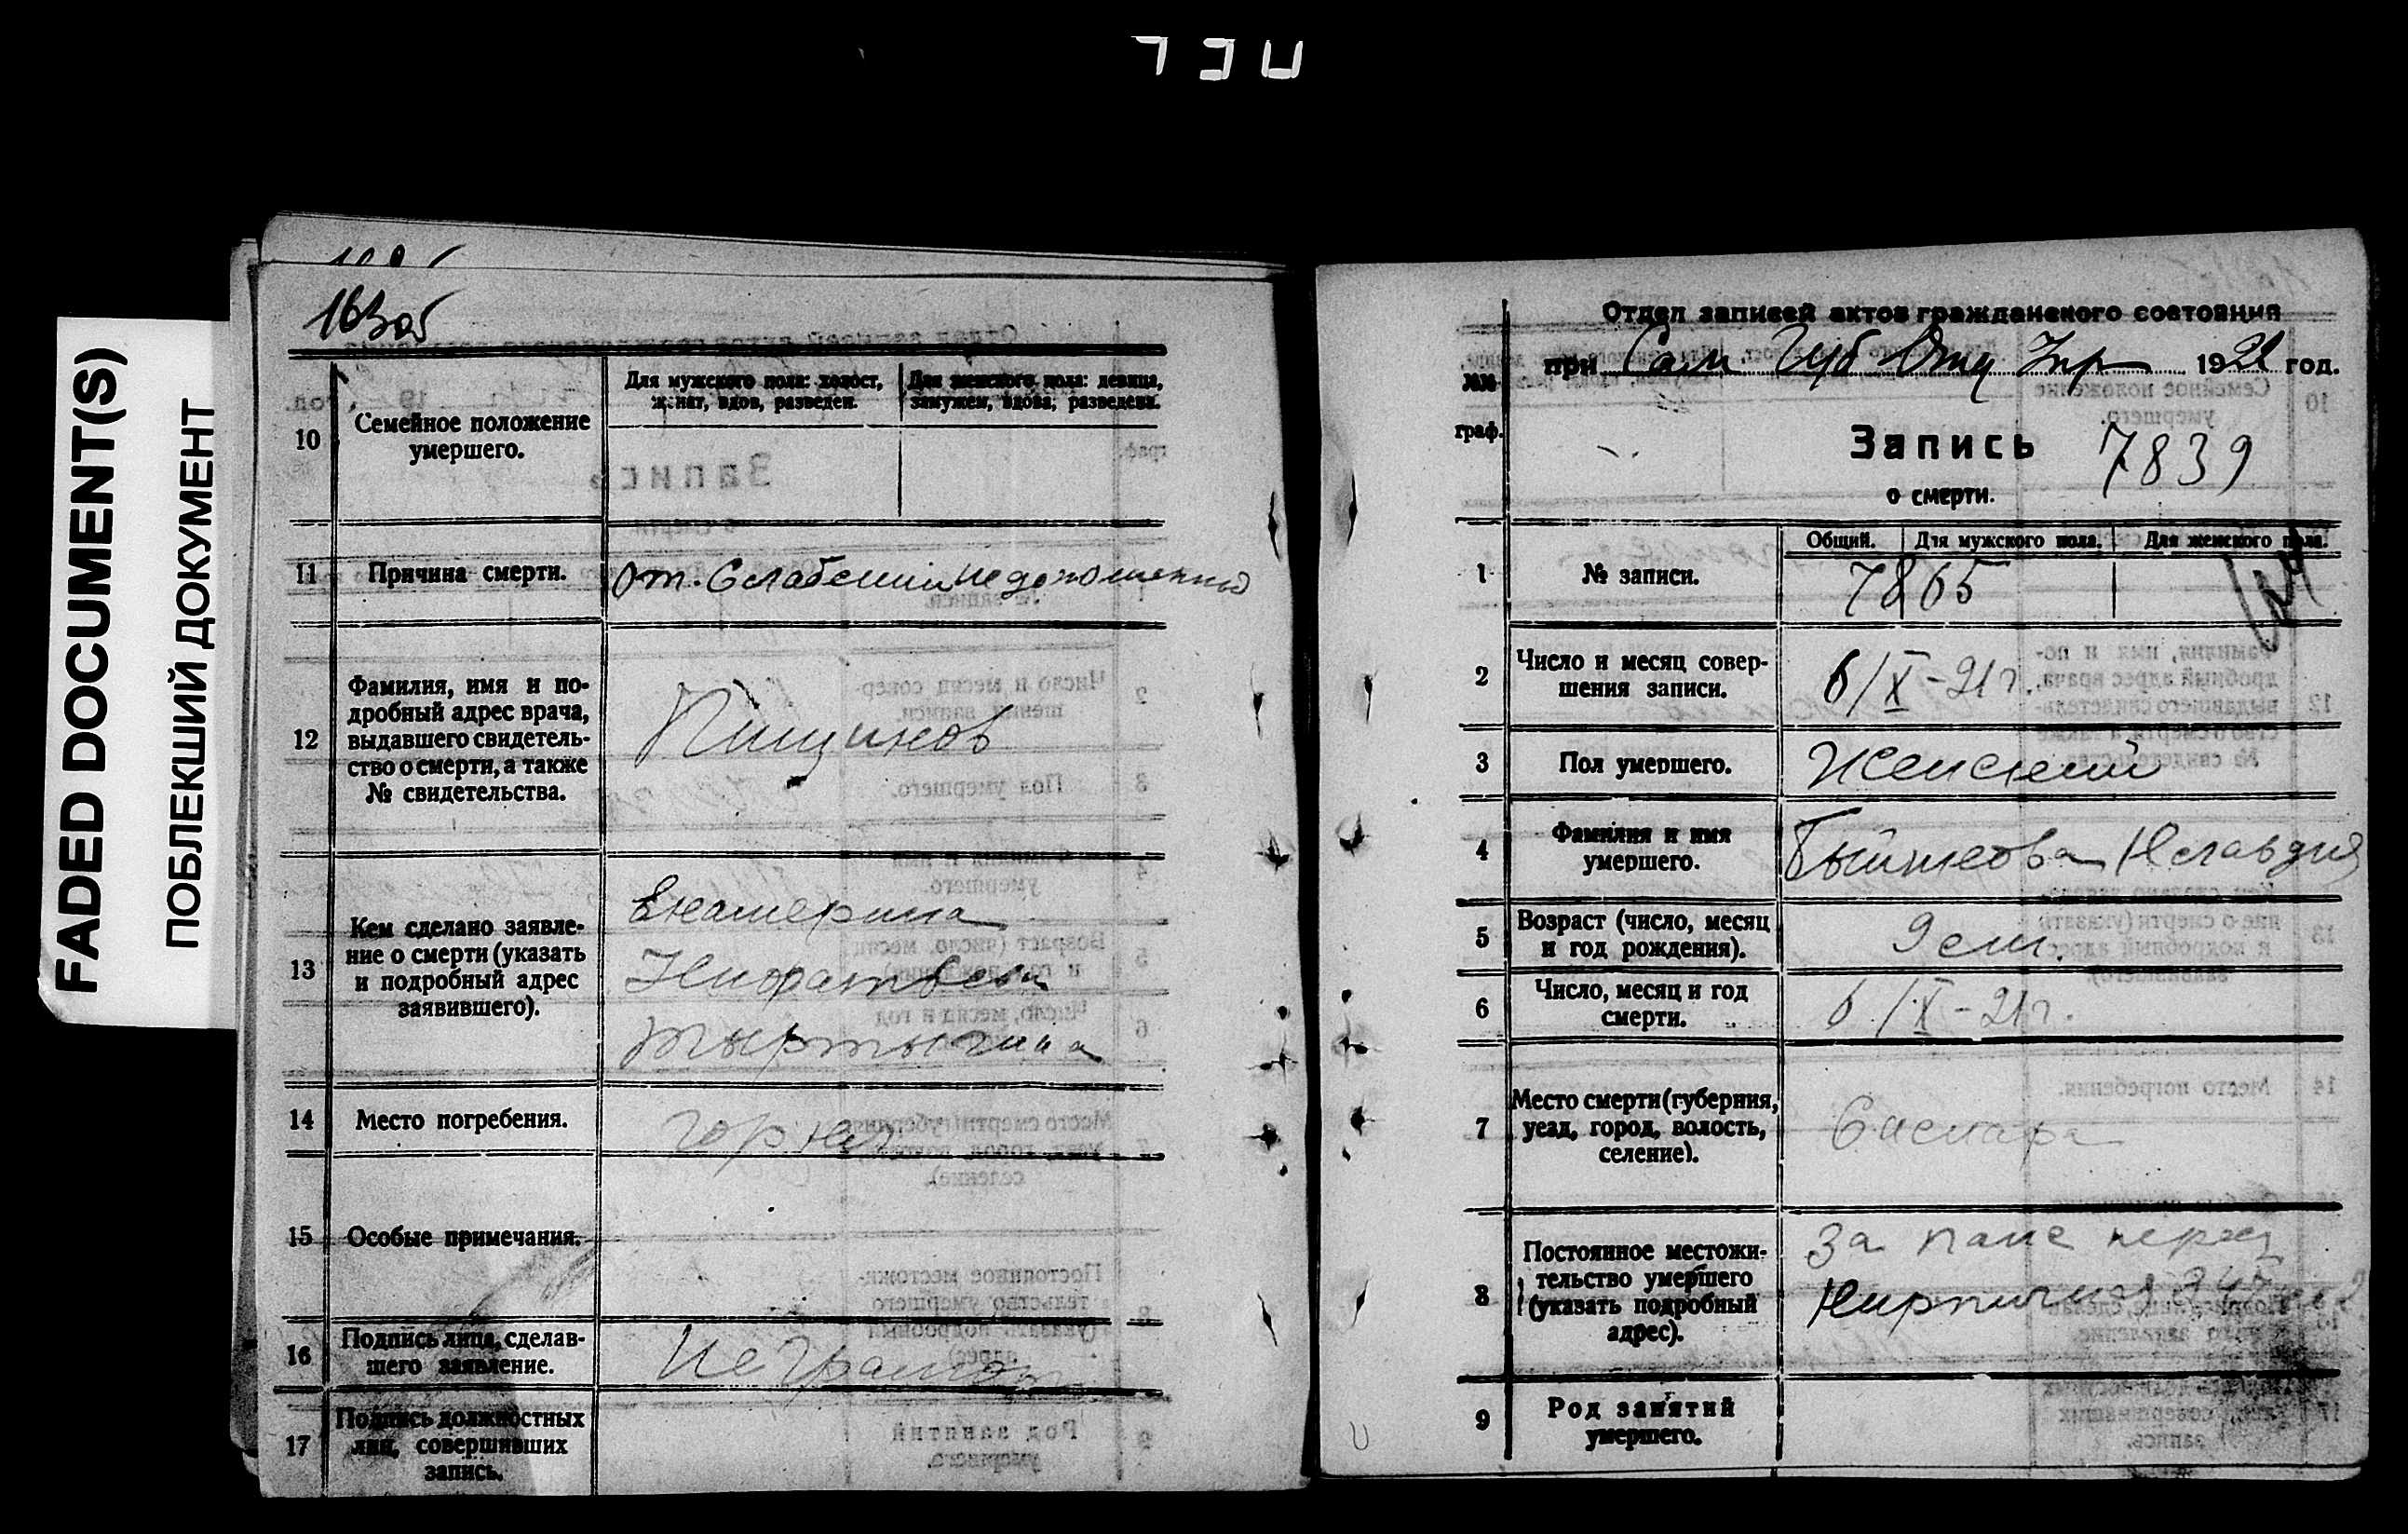 FADED DOCUMENT(S)
ПОБЛЕКШИЙ ДОКУМЕНТ
163об
10
Семейное положение
умершего.
Для мужского пола: холост,
женат, вдов, разведен.
Для женского пола: девица,
замужем, вдова, разведена.
11
Причина смерти.
От. Слабении недоношенной
12
Фамилия, имя и по-
дробный адрес врача,
выдавшего свидетель-
ство о смерти, а также
№ свидетельства.
13
Кем сделано заявле-
ние о смерти (указать
и подробный адрес
заявившего).
Екатерина
14
Место погребения.
15
Особые примечания.
16
Подпись лица, сделав-
шего заявление.
Неграмот
17
Подпись должностных
лиц, совершивших
запись.
№№
граф.
Отдел записей актов гражданского состояния
при Сам Губ Отд Упр 1921 год.
Запись 7839
о смерти.
Общий. Для мужского пола. Для женского пола.
1
№ записи.
7865
2
Число и месяц совер-
шения записи.
6/X-21г.
3
Пол умершего.
Женский
4
Фамилия и имя
умершего.
Клавдия
5
Возраст (число, месяц
и год рождения).
6
Число, месяц и год
смерти.
6/X-21г.
7
Место смерти (губерния,
уезд, город, волость,
селение).
Самара
8
Постоянное местожи-
тельство умершего
(указать подробный
адрес).
9
Род занятий
умершего.